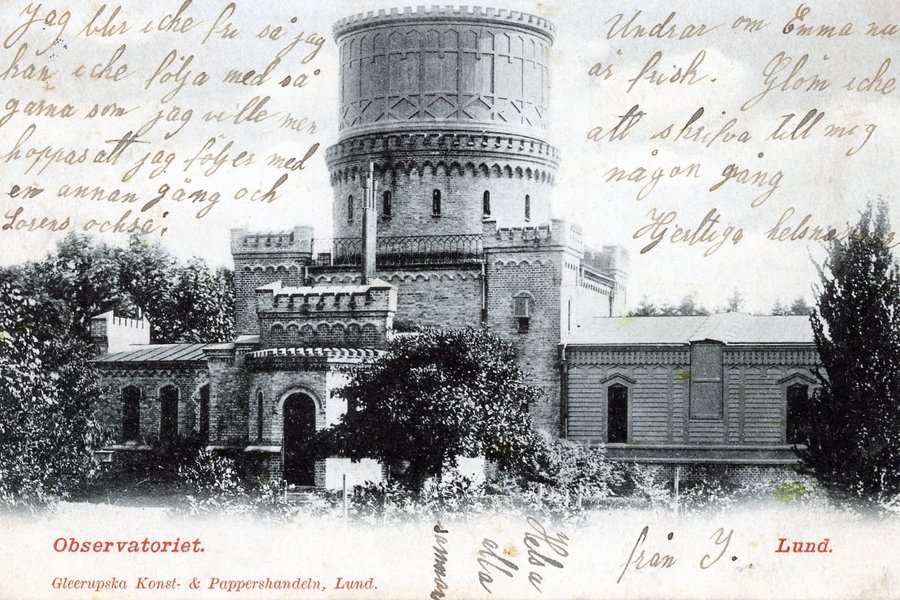 Jag blir icke fri så jag
kan icke följa med så
gärna som jag ville men
hoppas att jag följer med
en annan gång och
Lorens också.
Undrar om Emma nu
är frisk. Glöm icke
att skrifva till mig
någon gång
Hjertliga helsningar
från I.
Helsa
alla
samman
Observatoriet.
Lund.
Gleerupska Konst- & Pappershandeln, Lund.